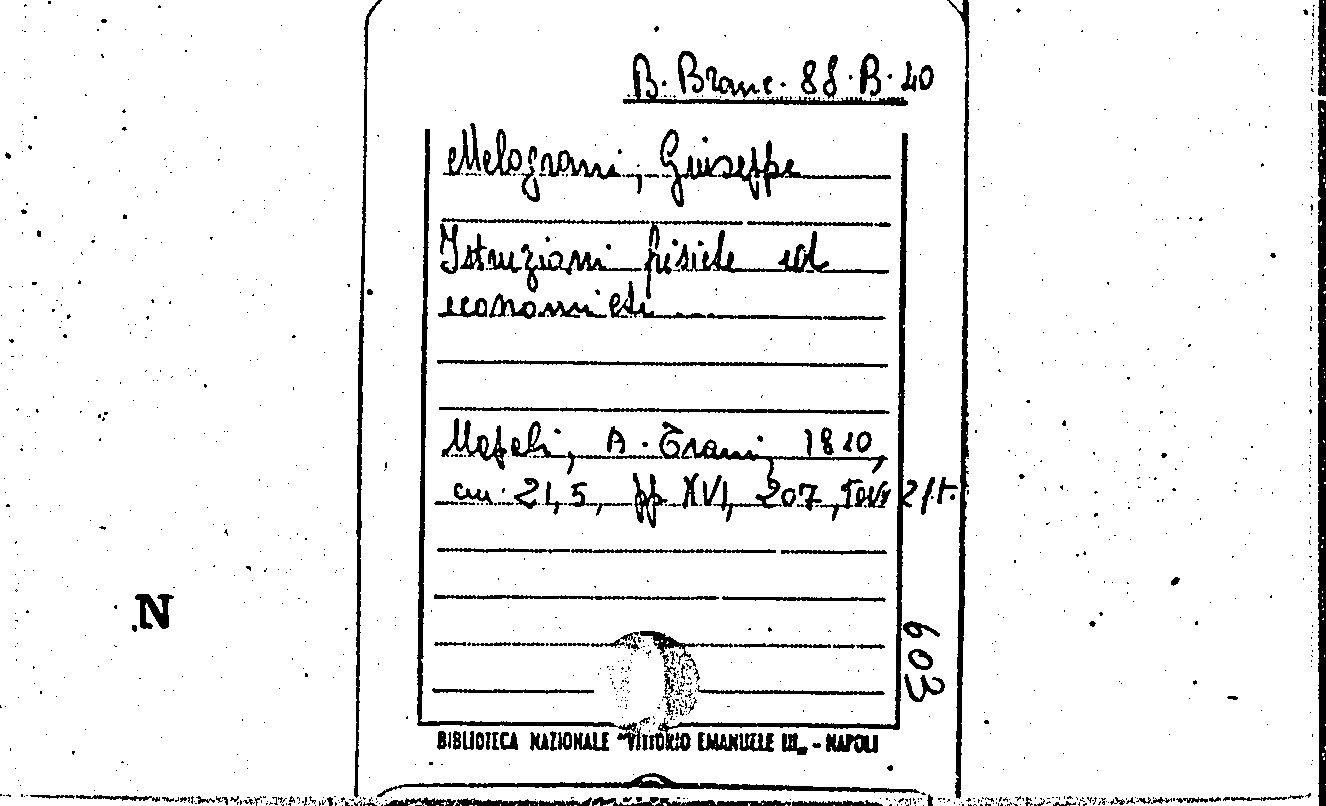 B. Branc. 88. B. 40
Melograni, Giuseppe
Istruzioni fisiche ed
economiche ....
Napoli, A. Trani, 1810,
cm. 21,5, pp. XVI, 207, tavv 2 f.t.
603
N
BIBLIOTECA NAZIONALE "VITTORIO EMANUELE III„ - NAPOLI